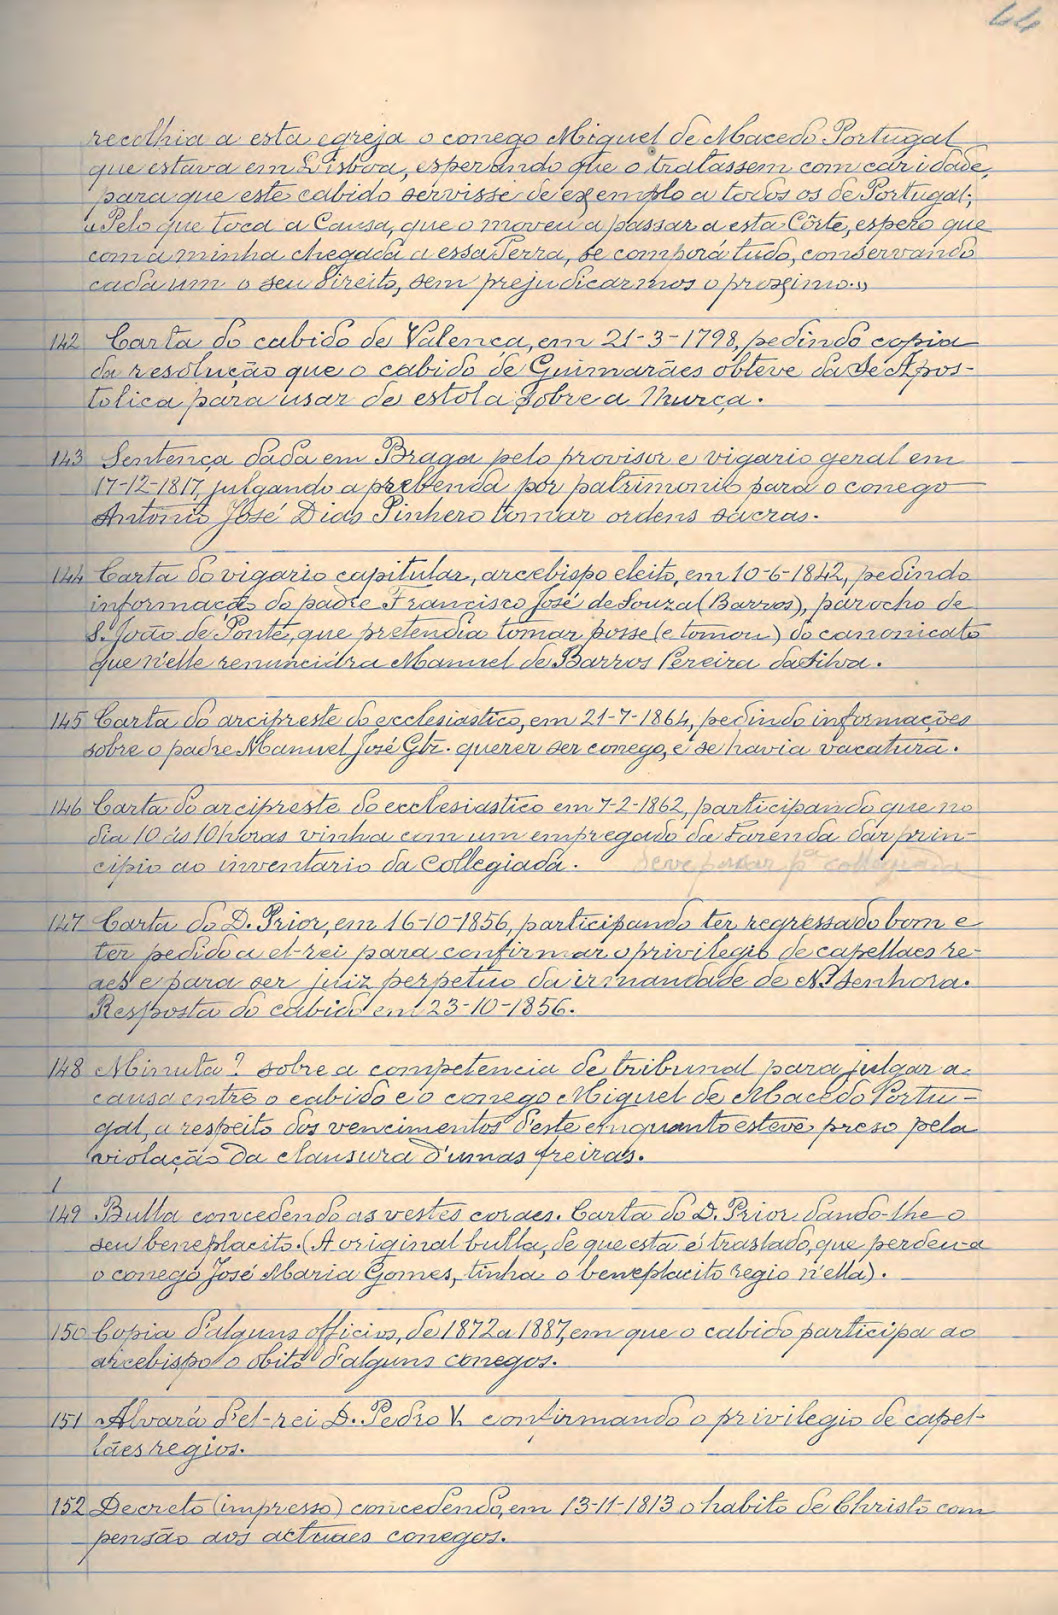 64
recolhia a esta egreja o conego Miguel de Macedo Portugal
que estava em Lisboa, esperando que o tratassem com caridade,
para que este cabido servisse de exemplo a todos os de Portugal;
"Pelo que toca a Causa, que o moveu a passar a esta Côrte, espero que
com a minha chegada a essa Terra, se comporá tudo, conservando
cada um o seu direito, sem prejudicarmos o proximo."
142 Carta do cabido de Valença, em 21-3-1798, pedindo copia
da resolução que o cabido de Guimarães obteve da Sé Apos-
tolica para usar de estola sobre a murça.
143 Sentença dada em Braga pelo provisor e vigario geral em
17-12-1817, julgando a prebenda por patrimonio para o conego
Antonio José Dias Pinhero tomar ordens sacras.
144 Carta do vigario capitular, arcebispo eleito, em 10-6-1842, pedindo
informação do padre Francisco José de Souza (Barros), parocho de
S. João de Ponte, que pretendia tomar posse (e tomou) do canonicato
que n'elle renunciára Manuel de Barros Pereira da Silva.
145 Carta do arcipreste do ecclesiastico, em 21-7-1864, pedindo informações
sobre o padre Manuel José Glz. querer ser conego, e se havia vacatura.
146 Carta do arcipreste do ecclesiastico em 7-2-1862, participando que no
dia 10 ás 10 horas vinha com um empregado da Fazenda dar prin-
cipio ao inventario da Collegiada. deve passar pª collegiada
147 Carta do D. Prior, em 16-10-1856, participando ter regressado bom e
ter pedido a el-rei para confirmar o privilegio de capellaes re-
aes e para ser juiz perpetuo da irmandade de N. Senhora.
Resposta do cabido em 23-10-1856.
148 Minuta? sobre a competencia de tribunal para julgar a
causa entre o cabido e o conego Miguel de Macedo Portu-
gal, a respeito dos vencimentos d'este emquanto esteve preso pela
violação da clausura d'umas freiras.
149 Bulla concedendo as vestes coraes. Carta do D. Prior dando-lhe o
seu beneplacito. (A original bulla, de que esta é traslado, que perdeu-a
o conego José Maria Gomes, tinha o beneplacito regio n'ella).
150 Copia d'alguns officios, de 1872 a 1887, em que o cabido participa ao
arcebispo o obito d'alguns conegos.
151 Alvará d'el-rei D. Pedro V. confirmando o privilegio de capel-
lães regios.
152 Decreto (impresso) concedendo, em 13-11-1813 o habito de Christo com
pensão aos actuaes conegos.